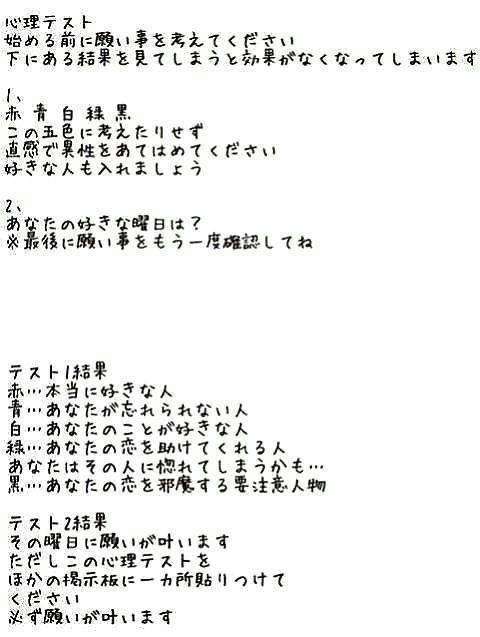 心理テスト
始める前に願い事を考えてください
下にある結果を見てしまうと効果がなくなってしまいます
1、
赤 青 白 緑 黒
この五色に考えたりせず
直感で異性をあてはめてください
好きな人も入れましょう
2、
あなたの好きな曜日は?
※最後に願い事をもう一度確認してね
テスト1結果
赤…本当に好きな人
青…あなたが忘れられない人
白…あなたのことが好きな人
緑…あなたの恋を助けてくれる人
あなたはその人に惚れてしまうかも…
黒…あなたの恋を邪魔する要注意人物
テスト2結果
その曜日に願いが叶います
ただしこの心理テストを
ほかの掲示板に一カ所貼りつけて
ください
必ず願いが叶います